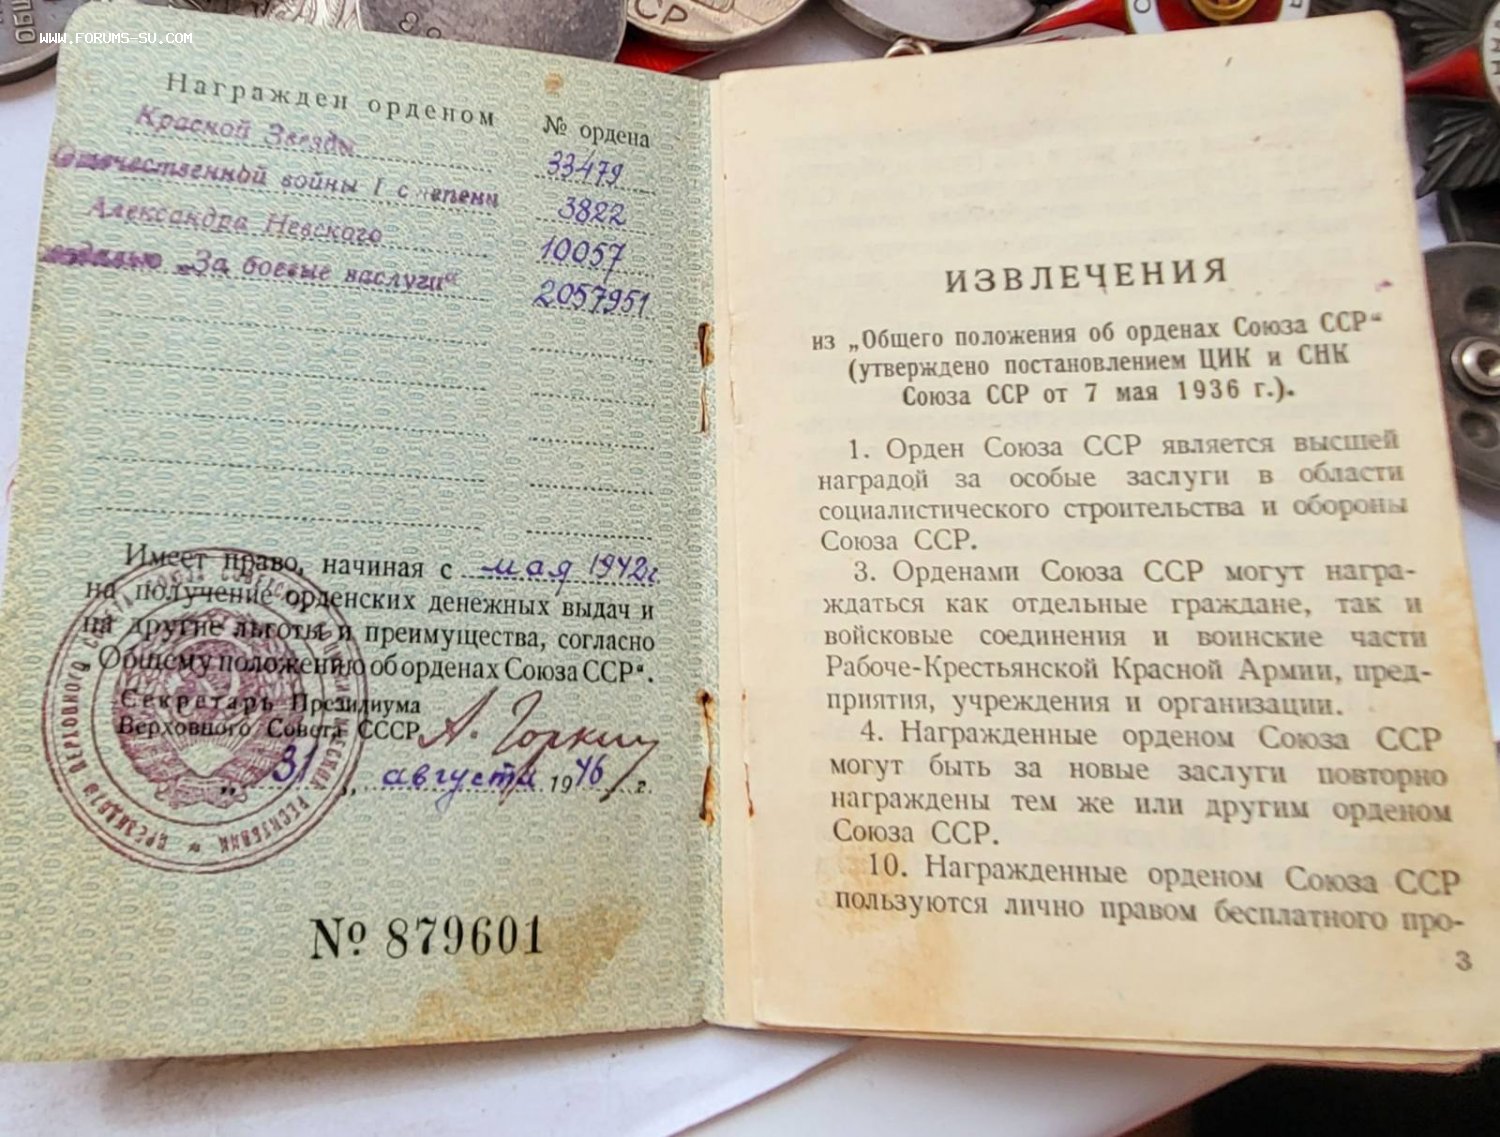 WWW.FORUMS-SU.COM
СР
Награжден орденом
№ ордена
Красной Звезды 33479
Отечественной войны I степени 3822
Александра Невского 10057
медалью „За боевые заслуги“ 2057951
Имеет право, начиная с мая 1942г.
на получение орденских денежных выдач и
на другие льготы и преимущества, согласно
„Общему положению об орденах Союза ССР“.
Секретарь Президиума
Верховного Совета СССР А. Горкин
„31„ августа 1946 г.
№ 879601
ИЗВЛЕЧЕНИЯ
из „Общего положения об орденах Союза ССР“
(утверждено постановлением ЦИК и СНК
Союза ССР от 7 мая 1936 г.).
1. Орден Союза ССР является высшей
наградой за особые заслуги в области
социалистического строительства и обороны
Союза ССР.
3. Орденами Союза ССР могут награ-
ждаться как отдельные граждане, так и
войсковые соединения и воинские части
Рабоче-Крестьянской Красной Армии, пред-
приятия, учреждения и организации.
4. Награжденные орденом Союза ССР
могут быть за новые заслуги повторно
награждены тем же или другим орденом
Союза ССР.
10. Награжденные орденом Союза ССР
пользуются лично правом бесплатного про-
3